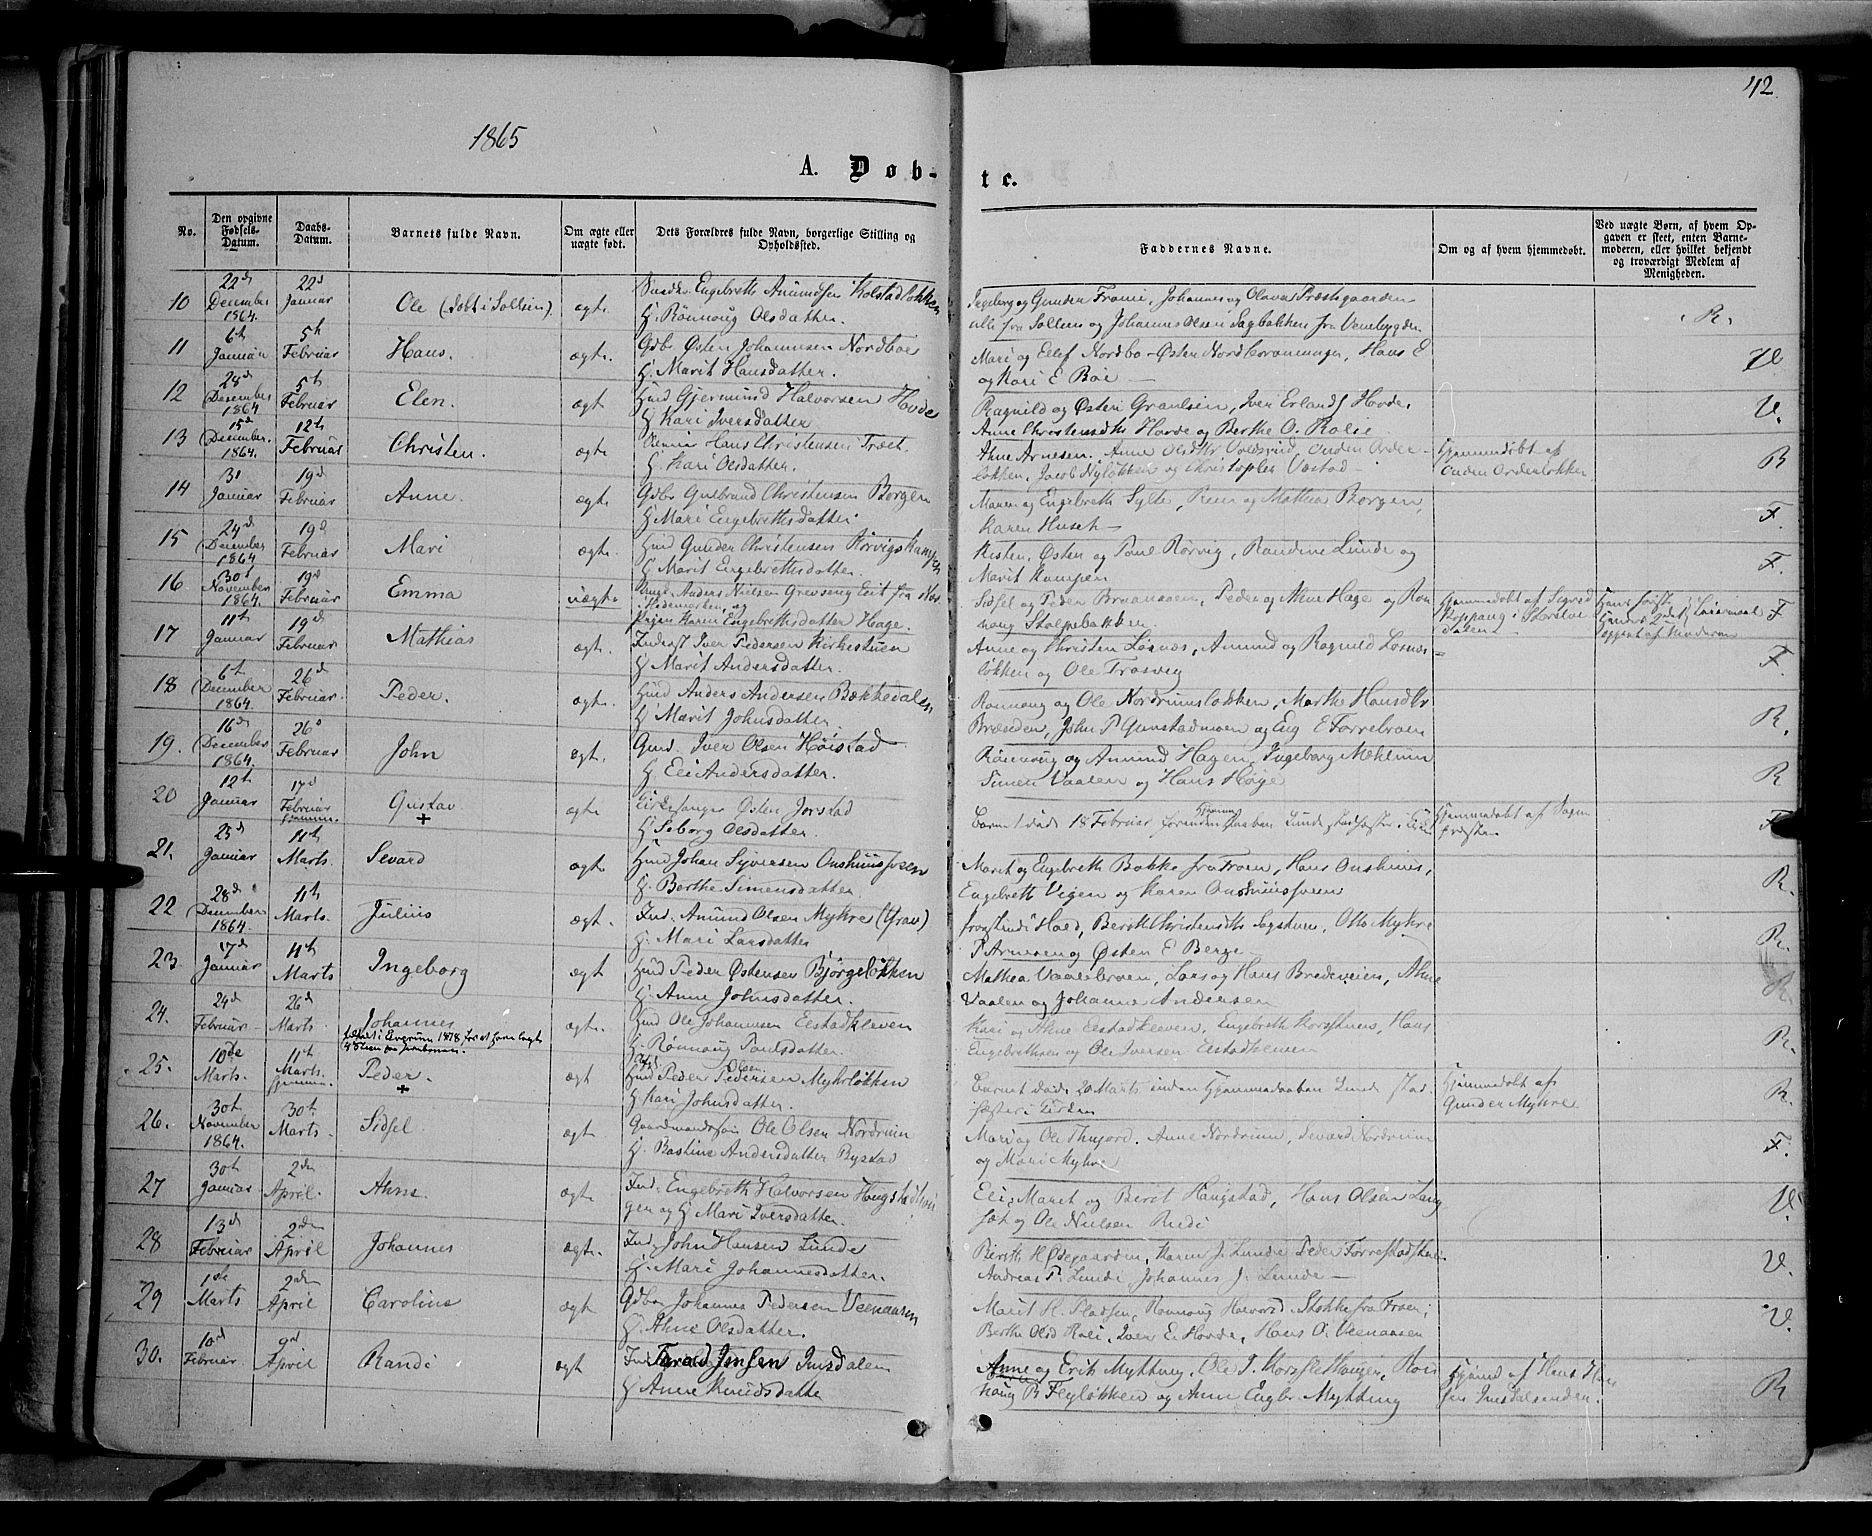 42
1865
A. Døb-
te.
No.
Den opgivne Fødsels-Datum.
Daabs-Datum.
Barnets fulde Navn.
Om ægte eller uægte født.
Dets Forældres fulde Navn, borgerlige Stilling og Opholdssted.
Faddernes Navne.
Om og af hvem hjemmedøbt.
Ved uægte Børn, af hvem Opgaven er skeet, enten Barnemoderen, eller hvilket bekjendt og troværdigt Medlem af Menigheden.
10 22d December 1864. 22d Januar Ole (døbt i Sollien). ægte Engebreth Amundsen Kolstadløkken
H. Rønnoug Olsdatter.
Ingeborg og Gunder Frami, Johannes og Olava Præstgaarden
alle fra Sollien og Johannes Olsen Sagbakken fra Venebygden
R.
11 6th Januar 5th Februar Hans. ægte. Gdbr Østen Johannesen Nordboe
H. Marit Hansdatter.
Mari og Ellef Nordbo - Østen Nordbo, Hans E
og Kari E Böe —
V
12 28d December 1864 5th Februar Elen. ægt. Huusd Gjermund Halvorsen Hovde
H Kari Iversdatter
Ragnild og Østen Graulsen, Iver Erlands Hovde,
Anne Christensdtr Hovde og Berthe O. Rolie
V.
13 15d December. 1864. 12th Februar Christen. ægte Hans Christensen Træet
H. Kari Olsdatter.
Ahne Arnesen. Anne Olsdtr Voldsrud, Ouden Ordер-
løkken, Jacob Nyløkken og Christopher Væstad —
Hjemmedøbt af
Ouden Orderløkken
R
14 31 Januar 19d Februar Anne. ægte Gdbr Gulbrand Christensen Borgen
H Mari Engebrethsdatter
Maren og Engebreth Sylte, og Mathea Borgen,
Karen Husch —
F.
15 24d December 1864 19d Februar Mari ægte. Huusd Gunder Christensen Rørvigskampen
H Marit Engebrethsdatter.
Kisten, Østen og Poul Rørvig, Randine Lunde og
Marit Kampen
F.
16 30t November 1864. 19d Februar Emma uægte Anders Nielsen Eeit fra
Hedemarken, og
Pigen Karen Engebrethsdatter Hage.
Sidsel og Peder Bruansven, Peder og Ahne Hage og Rønnoug Stolpebakken.
Hjemmedøbt af Sigrid
Koppang i Storelvdalen
opgivet af Moderen
F
17 11th Januar 19d Februar Mathias ægt. Inderst Iver Pedersen Kirkestuen
H Marit Andersdatter.
Anne og Christen Løsnæs, Amund og Ragnild Løsnæs=
løkken og Ole Trosvig
F.
18 6t December 1864. 26d Februar. Peder. ægte. Huusd Anders Andersen Bækkedalen
H Marit Johnsdatter.
Rønnoug og Ole Nordrumsløkken, Marthe Hansdtr
Bræden, John P Gunstadmoen og Eng E Forrebroen
R.
19. 16d December 1864. 26d Februar John ægt. Gmd. Iver Olsen Høistad
H Eli Andersdatter.
Rønnoug og Amund Hagen, Ingeborg Mehlum
Simen Vaalen og Hans Høge
R
20 12t Januar 17d Februar Gustav + ægte Kirkesanger Østen Jorstad
H Seborg Olsdatter.
Barnet døde 18 Februar Jordfæstet i
Hjemmedøbt af Sogn
præsten
F
21. 25d Januar 11th Marts. Sevard ægte Huusd Johan Syversen Onshuussveen
H. Berthe Simensdatter
Marit og Engebreth Bakke fra Froen, Hans Onshuus,
Engebreth Vigen og Karen Onshuussveen
R.
22 28d December 1864 11th Marts. Julius ægt. Ind: Amund Olsen Myhre (Grav)
H. Mari Larsdatter
Haed, Bereth Christensdtr Sagstuen, Otto Myhre
P Arnesen og Østen E Berge
R.
23. 17d Januar 11th Marts Ingeborg ægt Huusd Peder Østensen Bjørgeløkken
H. Anne Johnsdatter.
Mathea Vaalebroen, Lars og Hans Bredeveien, Ahne
Vaalen og Johanne Andersen
R.
24. 24d Februar 26d Marts. Johannes ægt. Huusd Ole Johannesen Elstadkleven
H. Rønnoug Poulsdatter.
Kari og Ahne Elstadkleven, Engebreth Korsstuen, Hans
Engebrethsen og Ole Iversen Elstadkleven
R.
25. 10de Marts. 11th Marts. Peder. + ægt Huusd Peder Pedersen Olsen Myhrløkken
H Kari Johnsdatter.
Barnet døde 20 Marts inden Hjemmedaaben kunde stad-
fæstes i Kirken
Hjemmedøbt af
Gunder Myhre.
R.
26. 30t November 1864. 30t Marts. Sidsel ægt Gaardmandssøn Ole Olsen Nordrum
H. Bastine Andersdatter Bystad
Mari og Ole Thujord. Anne Nordrum, Sevard Nordrum
og Mari Myhre
F.
27 30t Januar 2den April. Ahne ægte Ind. Engebreth Halvorsen Haugstad
og H Mari Iversdatter.
Eli, Maret og Berit Haugstad, Hans Olsen Lang
set og Ole Nielsen Rudi
V.
28 13d Februar 2den April Johannes ægte. Ind. John Hansen Lunde
H. Mari Johannesdatter.
Bereth H Ødegaarden, Karen J. Lunde Peder Forrestadstuen
Andreas P. Lunde, Johannes J. Lunde —
V.
29 1ste Marts 2den April Caroline ægt Gdbr Johannes Pedersen Veenaasen
H. Ahne Olsdatter.
Marit H. Pladsen, Rønnoug Havard. Stokke fra Froen;
Berthe Olsd Roli, Iver E. Hovde, Hans O. Veenaasen
V.
30. 10d Februar 9d April Randi ægt Ind Tarald Jensen Imsdalen
H Anne Knudsdatter
Anne og Erik Myhtting, Ole T. Korsflethaugen, Røn
noug R Flyløkken og Anne Engbr Myhtting
Hjemd af Hans Han
sen Imsdalsenden.
R